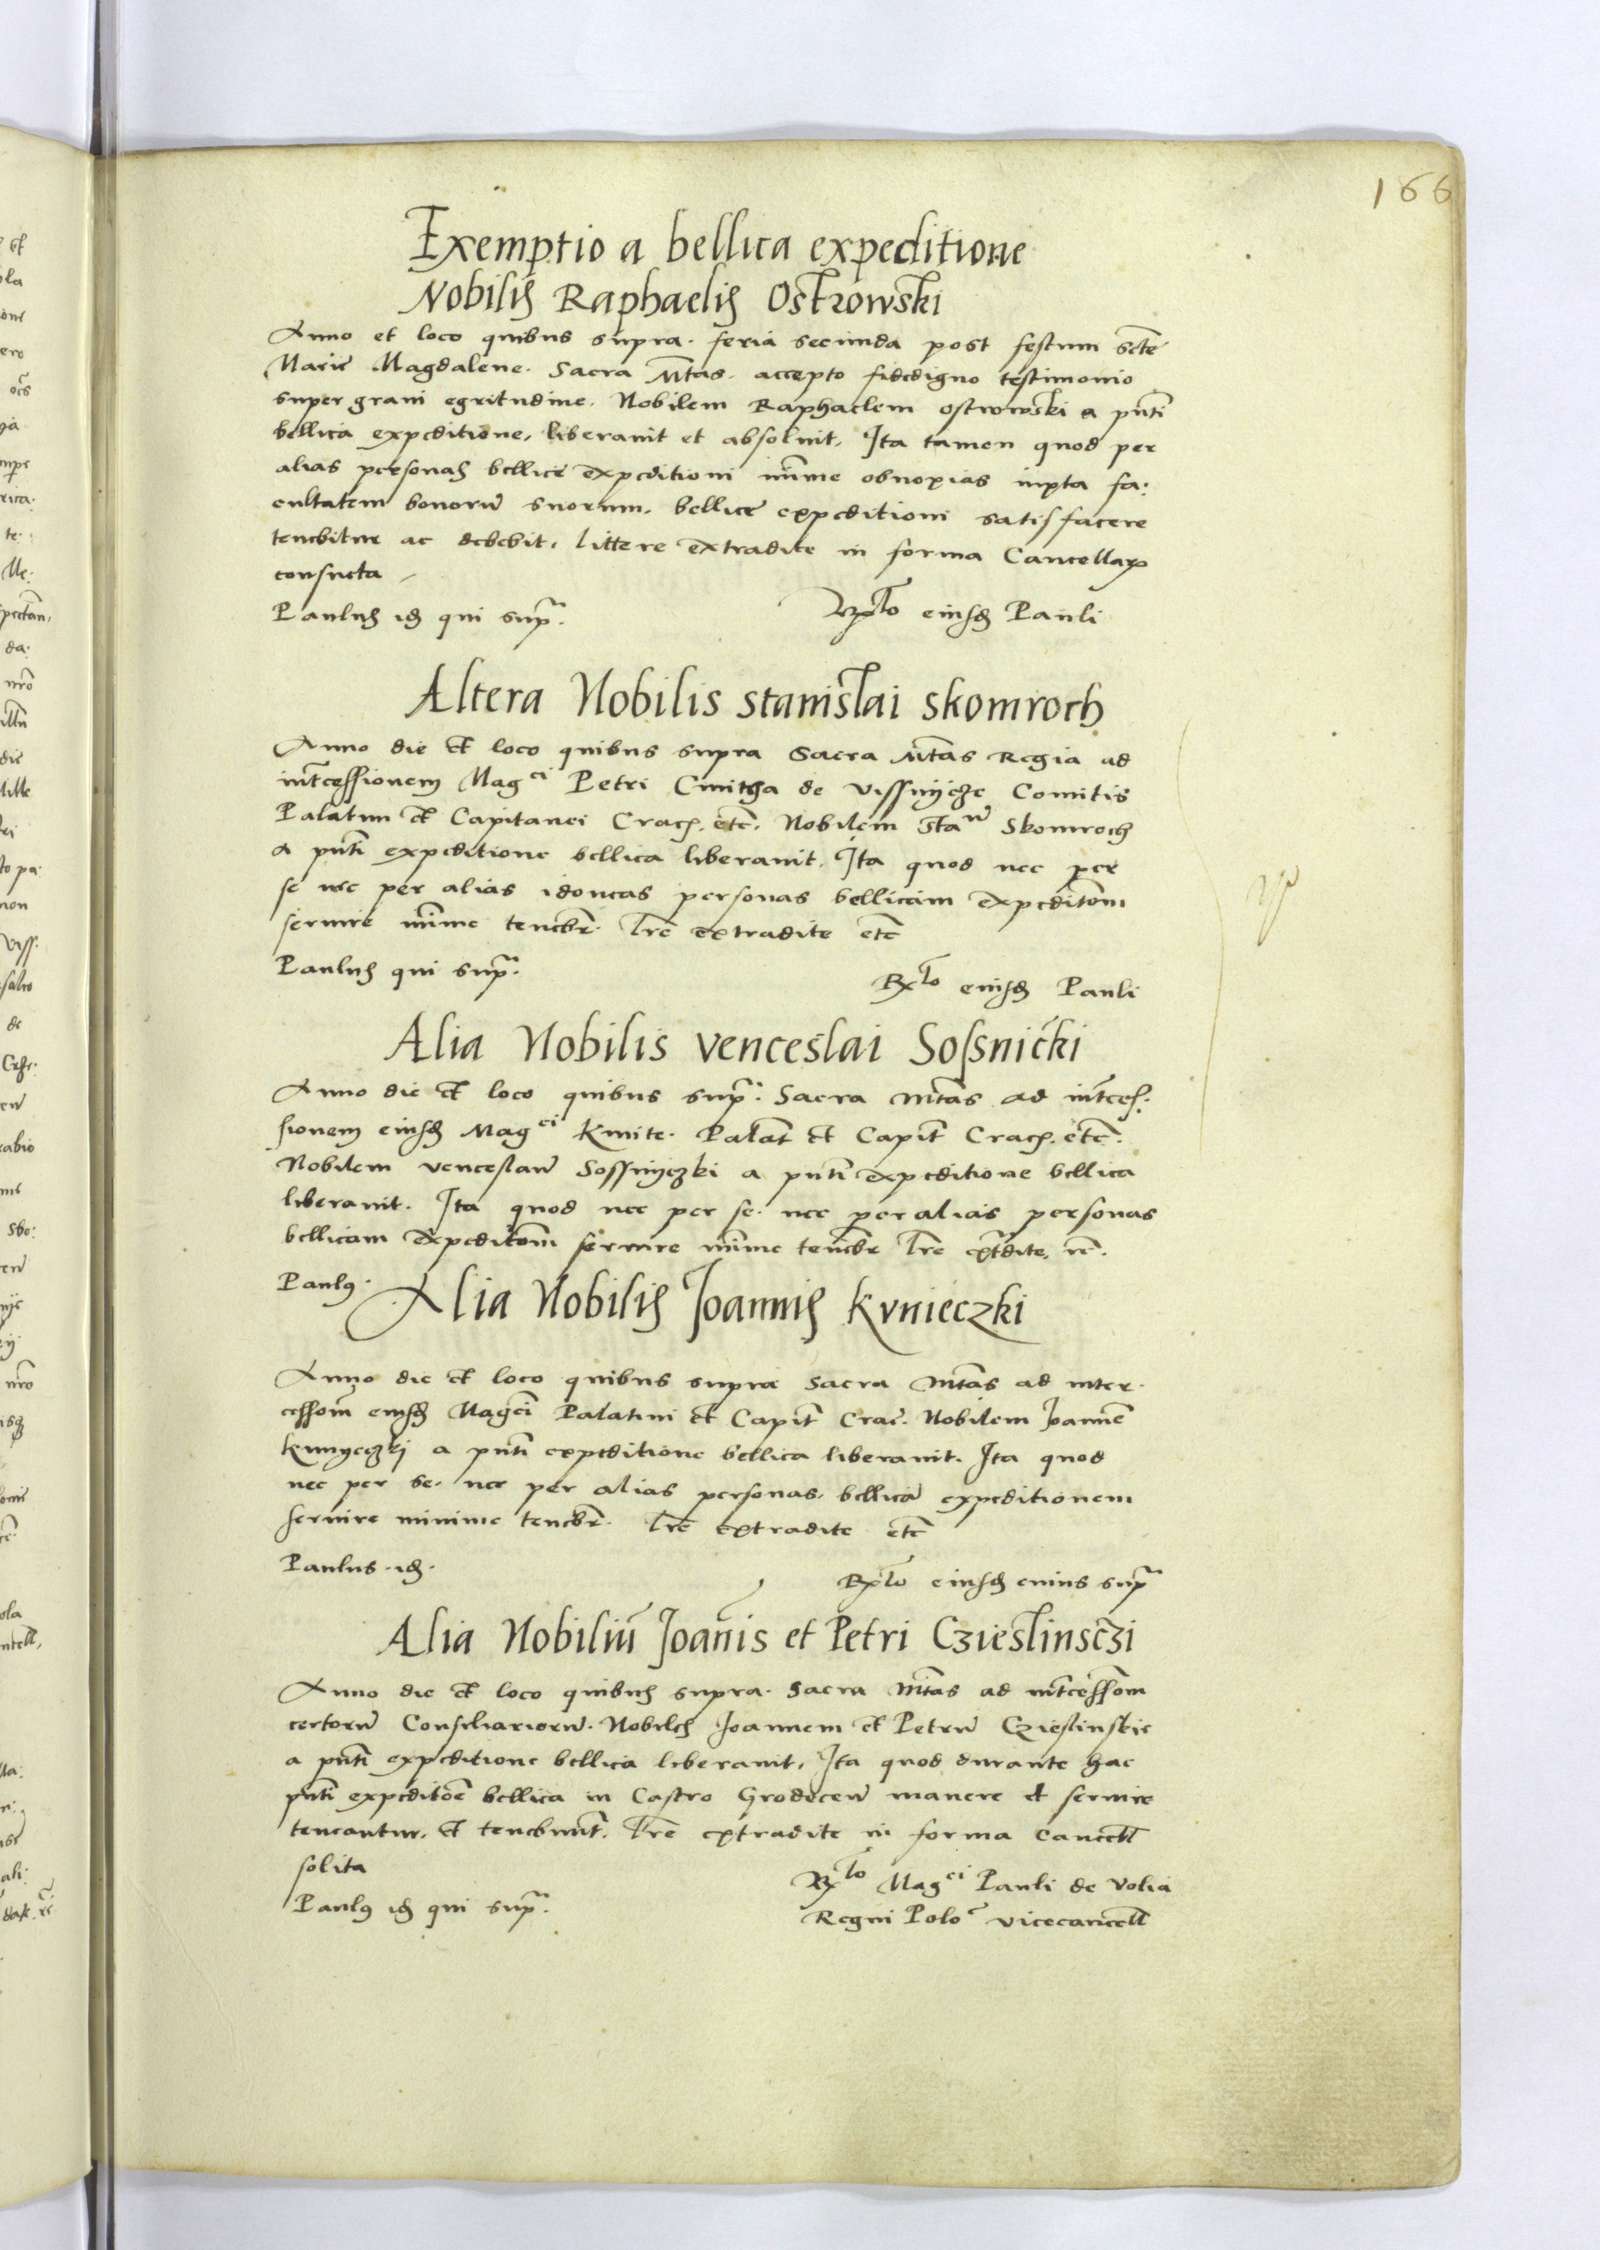 166
Exemptio a bellica expeditione
Nobilis Raphaelis Ostrowski
Anno et loco quibus supra. feria secunda post festum scte
Marie Magdalene. Sacra Mtas. accepto fidedigno testimonio
super gravi egritudine. Nobilem Raphaelem Ostrowski a pnti
bellica expeditione, liberavit et absolvit, Ita tamen quod per
alias personas bellice expeditioni mīme obnoxias iuxta fa:
cultatem bonorū suorum. bellice expeditioni satisfacere
tenebitur ac debebit, littere extradite in forma Cancellar
consueta
Paulus id qui supra.
Rlto eiusd Pauli
Altera Nobilis Stanislai Skomroch
Anno die et loco quibus supra Sacra Mtas Regia ad
intcessionem Magci Petri Cmitha de Vissnycze Comitis
Palatini et Capitanei Crac. etc. Nobilem Stanū Skomroch
a pnti expeditione bellica liberavit, Ita quod nec per
se nec per alias idoneas personas bellicam expeditōm
servire mīme tenebr. Lre extradite etc
Paulus qui supra.
Rlto eiusd Pauli
Alia Nobilis Venceslai Sossnicki
Anno die et loco quibus supra. Sacra Mtas ad intces:
sionem eiusd Magci Kmite. Palat et Capit Crac. etc.
Nobilem Venceslaū Sossnyczki a pnti expeditione bellica
liberavit. Ita quod nec per se. nec per alias personas
bellicam expeditōm servire mīme tenebr Lre extdite, rc.
Paul9.
Alia Nobilis Joannis Kvnieczki
Anno die et loco quibus supra Sacra Mtas ad inter.
cessiom eiusd Magci Palatini et Capit Crac. Nobilem Joannē
Kunyeczkj a pnti expeditione bellica liberavit. Ita quod
nec per se. nec per alias personas. bellicā expeditionem
servire minime tenebr. Lre extradite etc
Paulus. id.
Rlto eiusd cuius supra
Alia Nobiliū Joānis et Petri Czieslinsczi
Anno die et loco quibus supra. Sacra Mtas ad intcessiom
certorū Consiliariorū. Nobiles Joannem et Petrū Czieslinskie
a pnti expeditione bellica liberavit, Ita quod durante hac
pnti expeditōe bellica in Castro Grodecen manere et servire
teneantur, et tenebunt. Lre extradite in forma Cancell
solita
Paul9 id qui supra.
Rlto Magci Pauli de Volia
Regni Polo vicecancell